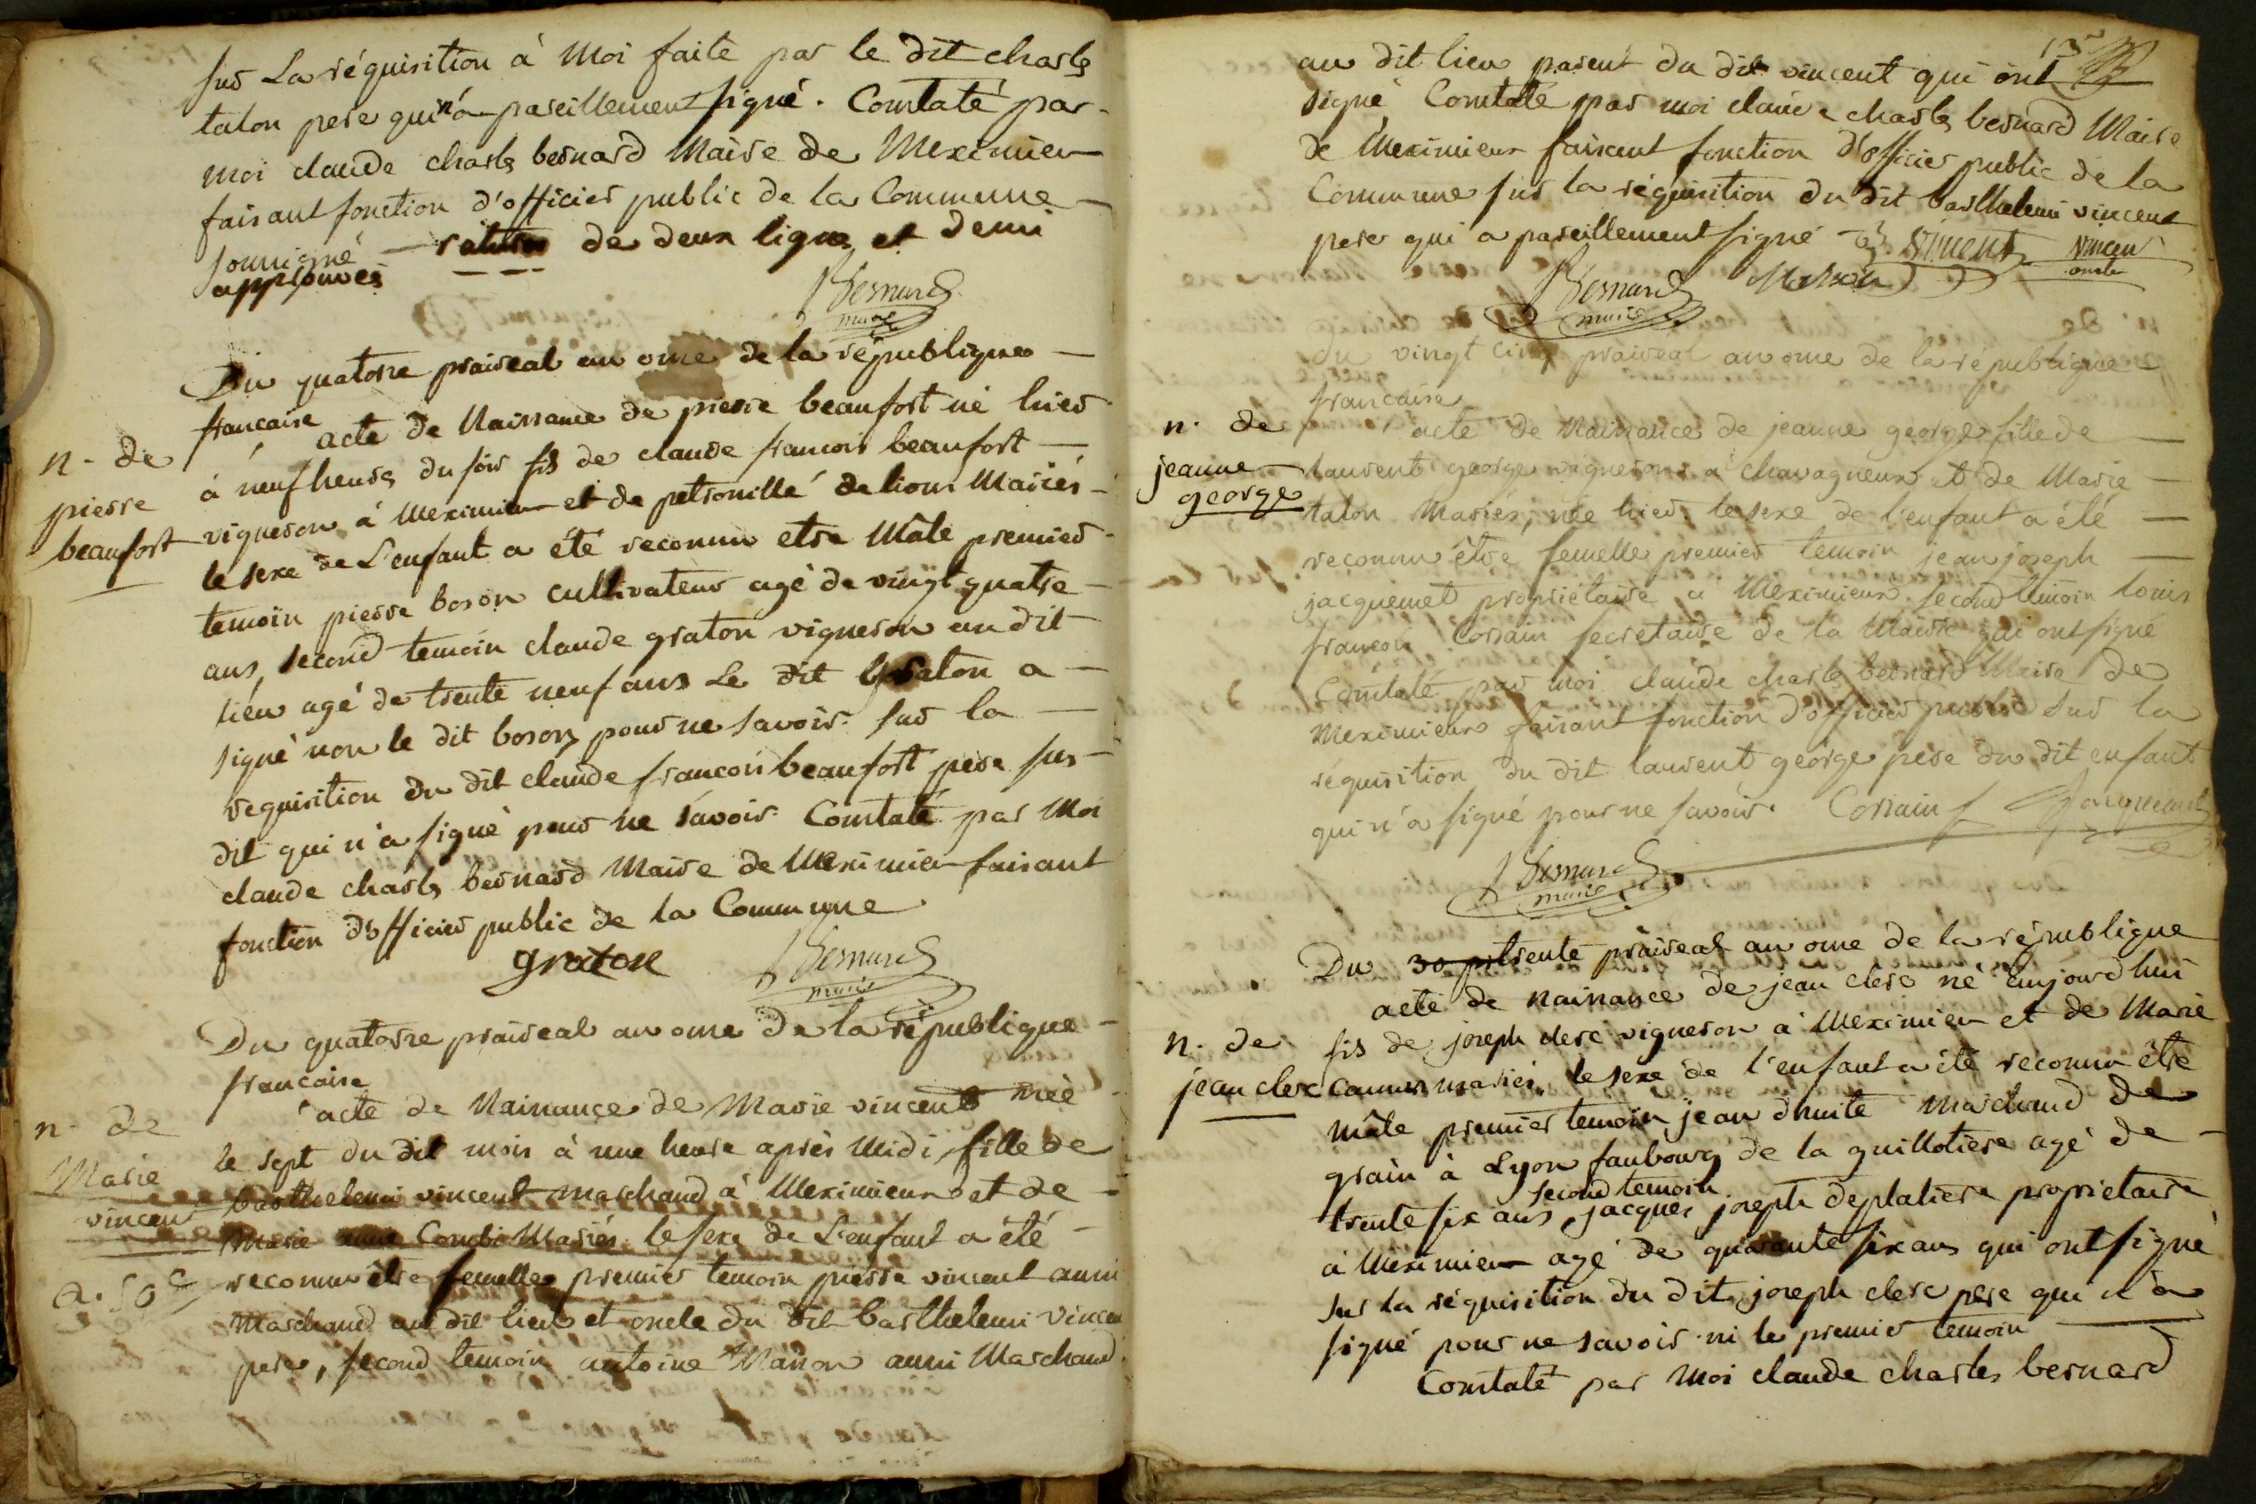 sur La réquisition à Moi faite par le dit charles
talon pere qui n'a pareillement signé. Constaté par
moi claude charles bernard Maire de Meximieu
faisant fonction d'officier public de la Commune
soussigné — rature de deux lignes et demi
approuvés
Bernard
maire
Du quatorze prairéal an onze de la république
francaise
acte de Naissance de pierre beaufort né hier
n. de
pierre
beaufort
à neuf heures du soir fils de claude francois beaufort
vigneron à Meximieu et de petronille delious Mariés
le sexe de L'enfant a été reconnu etre Mâle premier
temoin pierre boson cultivateur agé de vingt quatre
ans, second temoin claude graton vigneron au dit
lieu agé de trente neuf ans Le dit Graton a
signé non le dit boson pour ne savoir. sur la
requisition du dit claude francois beaufort père sus
dit qui n'a signé pour ne savoir. Constaté par Moi
claude charles bernard Maire de Meximieu faisant
fonction d'officier public de la Commune
graton
Bernard
maire
Du quatorze prairéal an onze de la république
francaise
acte de Naissance de Marie vincent née
n. de
Marie
vincent
a. 50 c
le sept du dit mois à une heure après Midi, fille de
barthelemi vincent marchand à Meximieux et de
Marie Combe Mariés le sexe de L'enfant a été
reconnu être femelle premier temoin pierre vincent aussi
Marchand au dit lieu et oncle du dit barthelemi vincent
pere, second temoin antoine Masson aussi Marchand
au dit lieu parent du dit vincent qui ont
signé Constaté par moi claude charles bernard Maire
de Meximieux faisant fonction d'officier public de la
Commune sur la réquisition du dit barthelemi vincent
pere qui a pareillement signé B vincent vincent
oncle
Masson
Bernard
maire
du vingt cinq prairéal an onze de la république
francaise
n. de
jeanne
george
acte de Naissance de jeanne george fille de
laurent george vigneron à chavagneux et de Marie
talon Mariés, née hier, le sexe de l'enfant a été
reconnu être femelle premier temoin jean joseph
jacquemet propriétaire à Meximieux second temoin louis
francois Cossain secretaire de la Mairie qui ont signé
Constaté par moi claude charles bernard Maire de
Meximieux faisant fonction d'officier public sur la
réquisition du dit laurent george père du dit enfant
qui n'a signé pour ne savoir. Cossain Jacquemet
Bernard
maire
Du 30 p trente prairéal an onze de la république
acte de naissance de jean clerc né aujourdhui
n. de
jean clerc
fils de joseph clerc vigneron à Meximieu et de Marie
mariés. le sexe de l'enfant a été reconnu être
mâle premier temoin jean druite Marchand de
grain à Lyon faubourg de la guillotière agé de
second temoin
trente six ans, jacques joseph deplatiere proprietaire
à Meximieu agé de quarante six ans qui ont signé
sur la réquisition du dit joseph clerc pere qui n'a
signé pour ne savoir ni le premier temoin
Constaté par Moi claude charles bernard